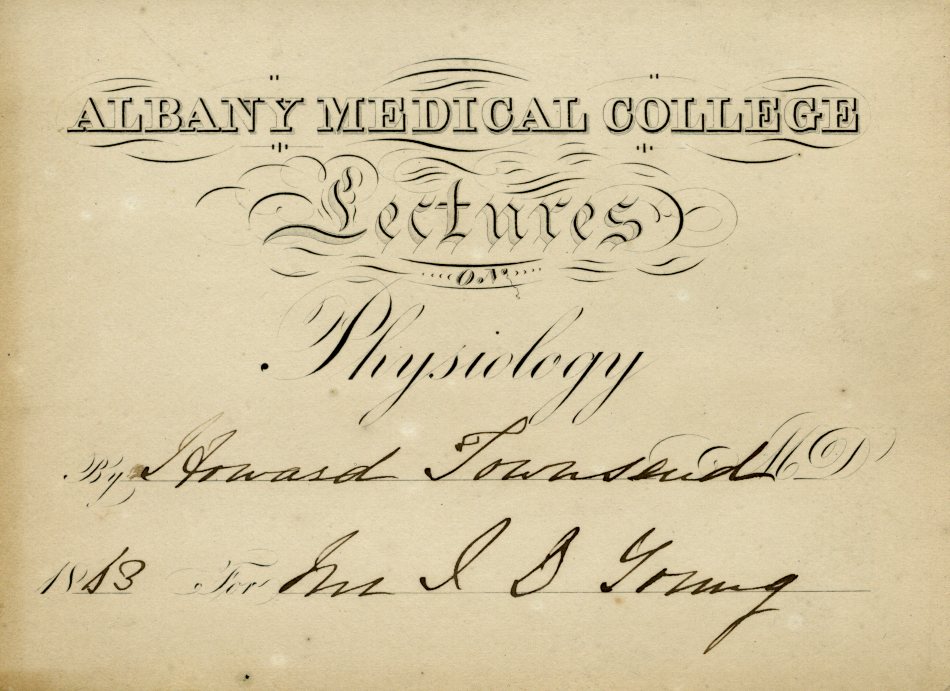 ALBANY MEDICAL COLLEGE
Lectures
ON
Physiology
By Howard Townsend M D
For Mr I B Young